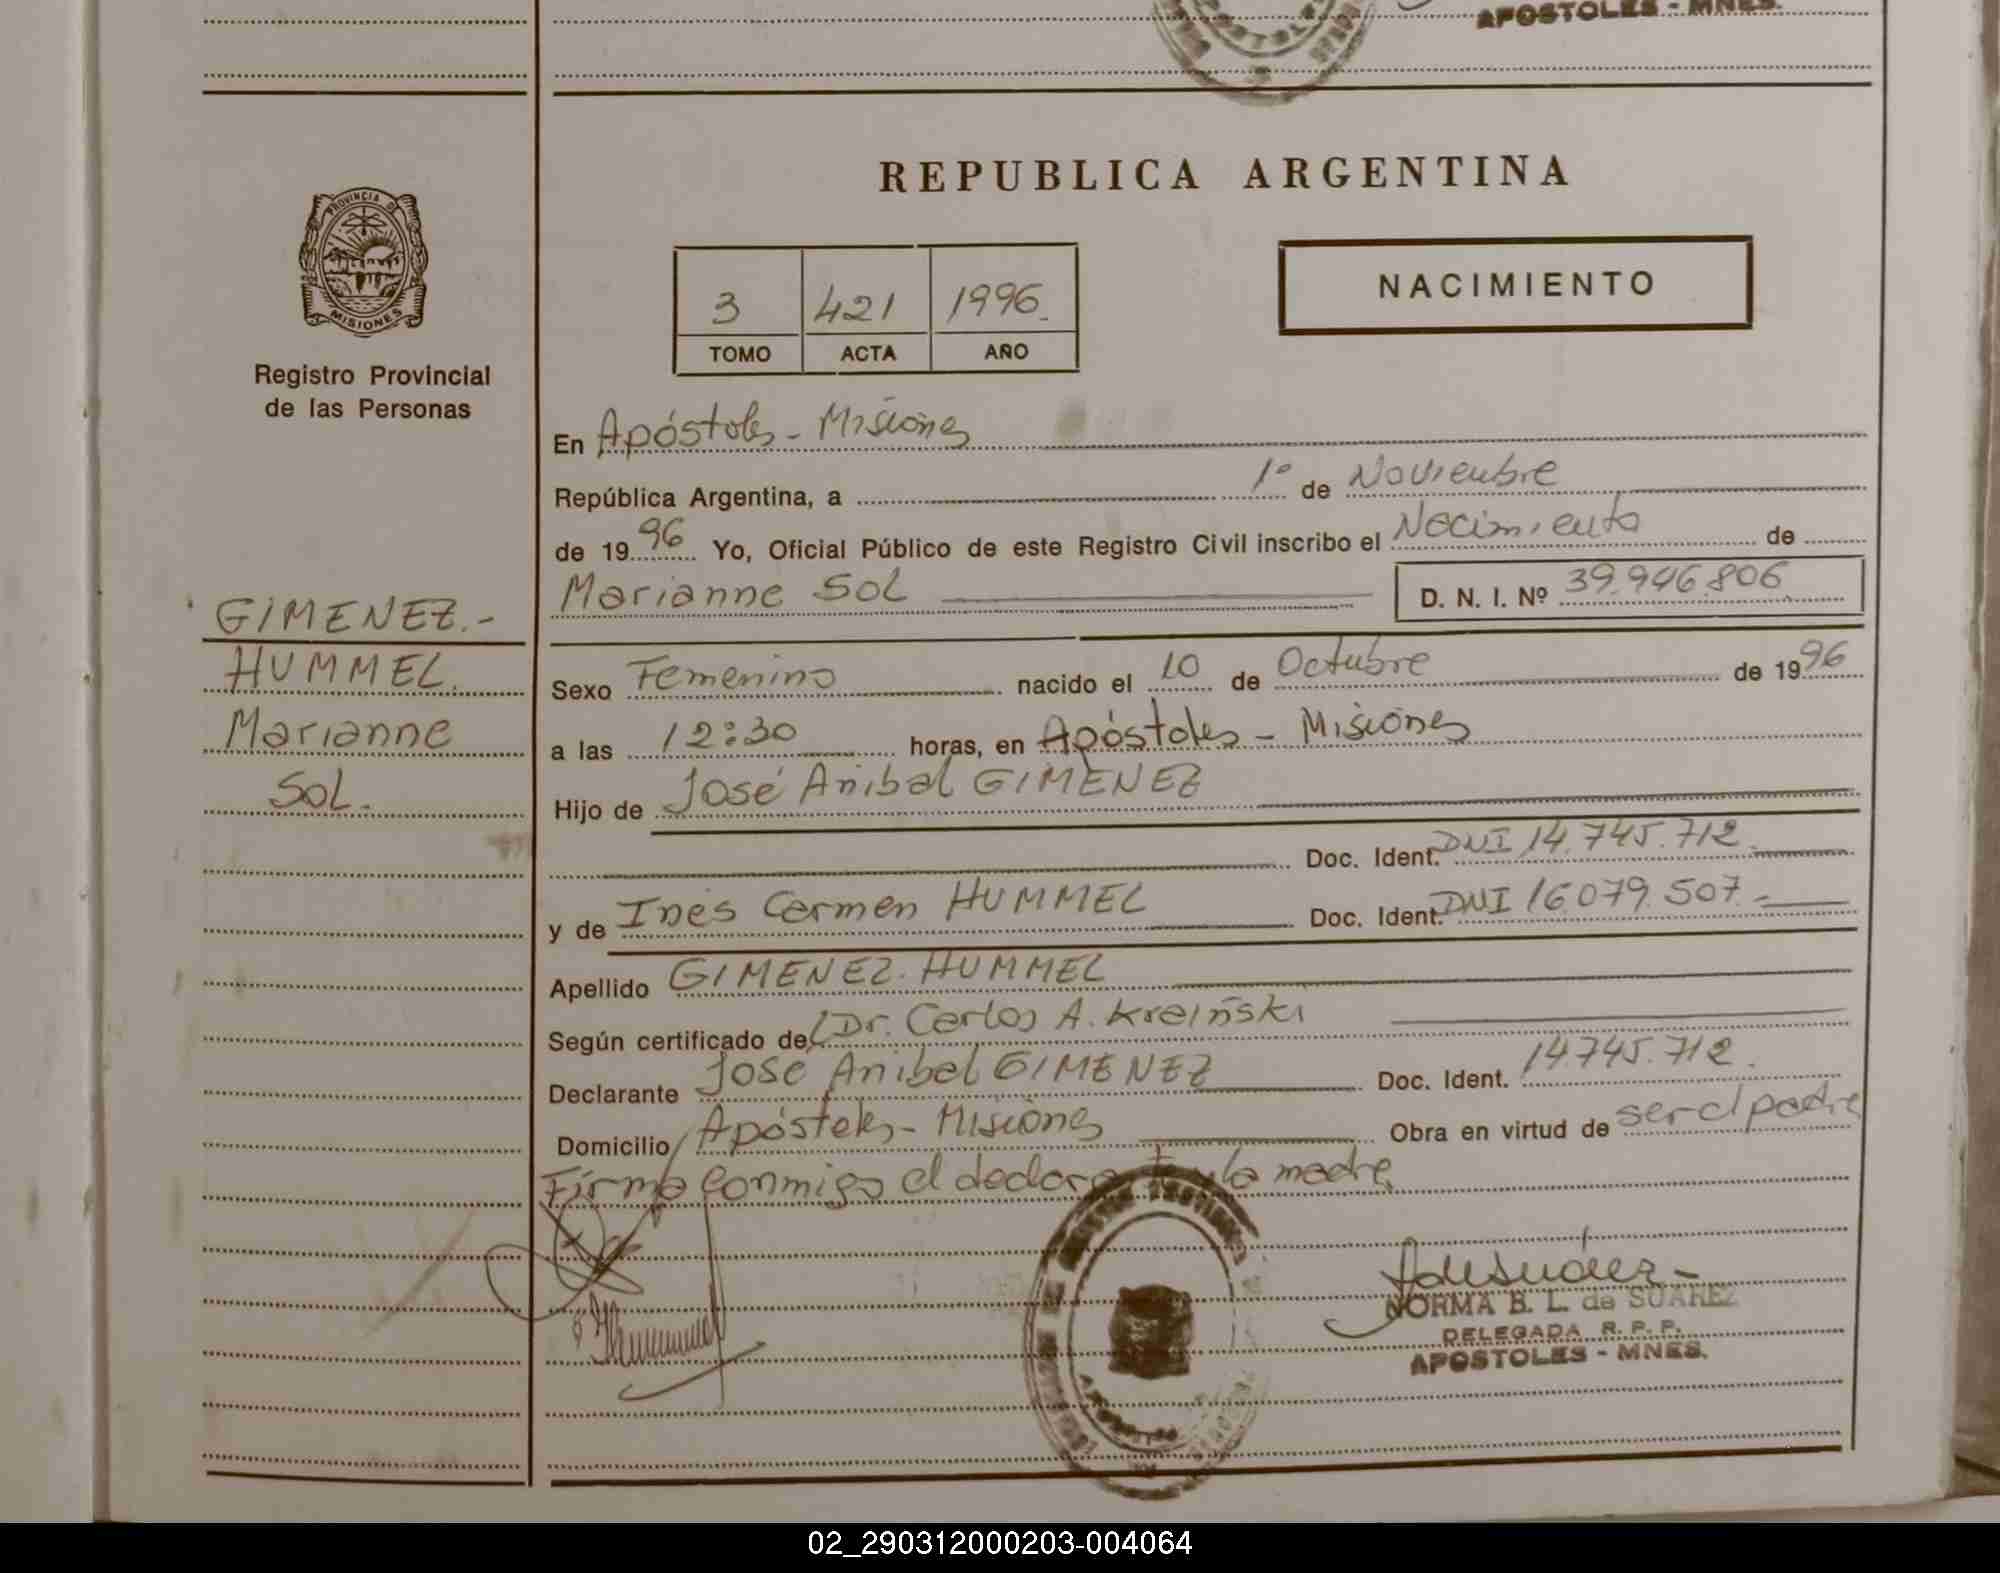 APOSTOLES - MNES.
REPUBLICA ARGENTINA
PROVINCIA DE
MISIONES
Registro Provincial
de las Personas
3 421 1996
TOMO ACTA AÑO
NACIMIENTO
En Apóstoles - Misiones
República Argentina, a 1º de Noviembre
de 1996 Yo, Oficial Público de este Registro Civil inscribo el Nacimiento de
Marianne SOL D. N. I. Nº 39.946.806
GIMENEZ.-
HUMMEL.
Marianne
SOL.
Sexo Femenino nacido el 10 de Octubre de 1996
a las 12:30 horas, en Apóstoles - Misiones
Hijo de José Anibal GIMENEZ
Doc. Ident. DNI 14.745.712.
y de Inés Carmen HUMMEL Doc. Ident. DNI 16.079.507.-
Apellido GIMENEZ HUMMEL
Según certificado de Dr. Carlos A. Kreiñski
Declarante José Anibal GIMENEZ Doc. Ident. 14.745.712.
Domicilio Apóstoles - Misiones Obra en virtud de ser el padre
Firma conmigo el declarante y la madre
NORMA B. L. de SUAREZ
DELEGADA R. P. P.
APOSTOLES - MNES.
02_290312000203-004064